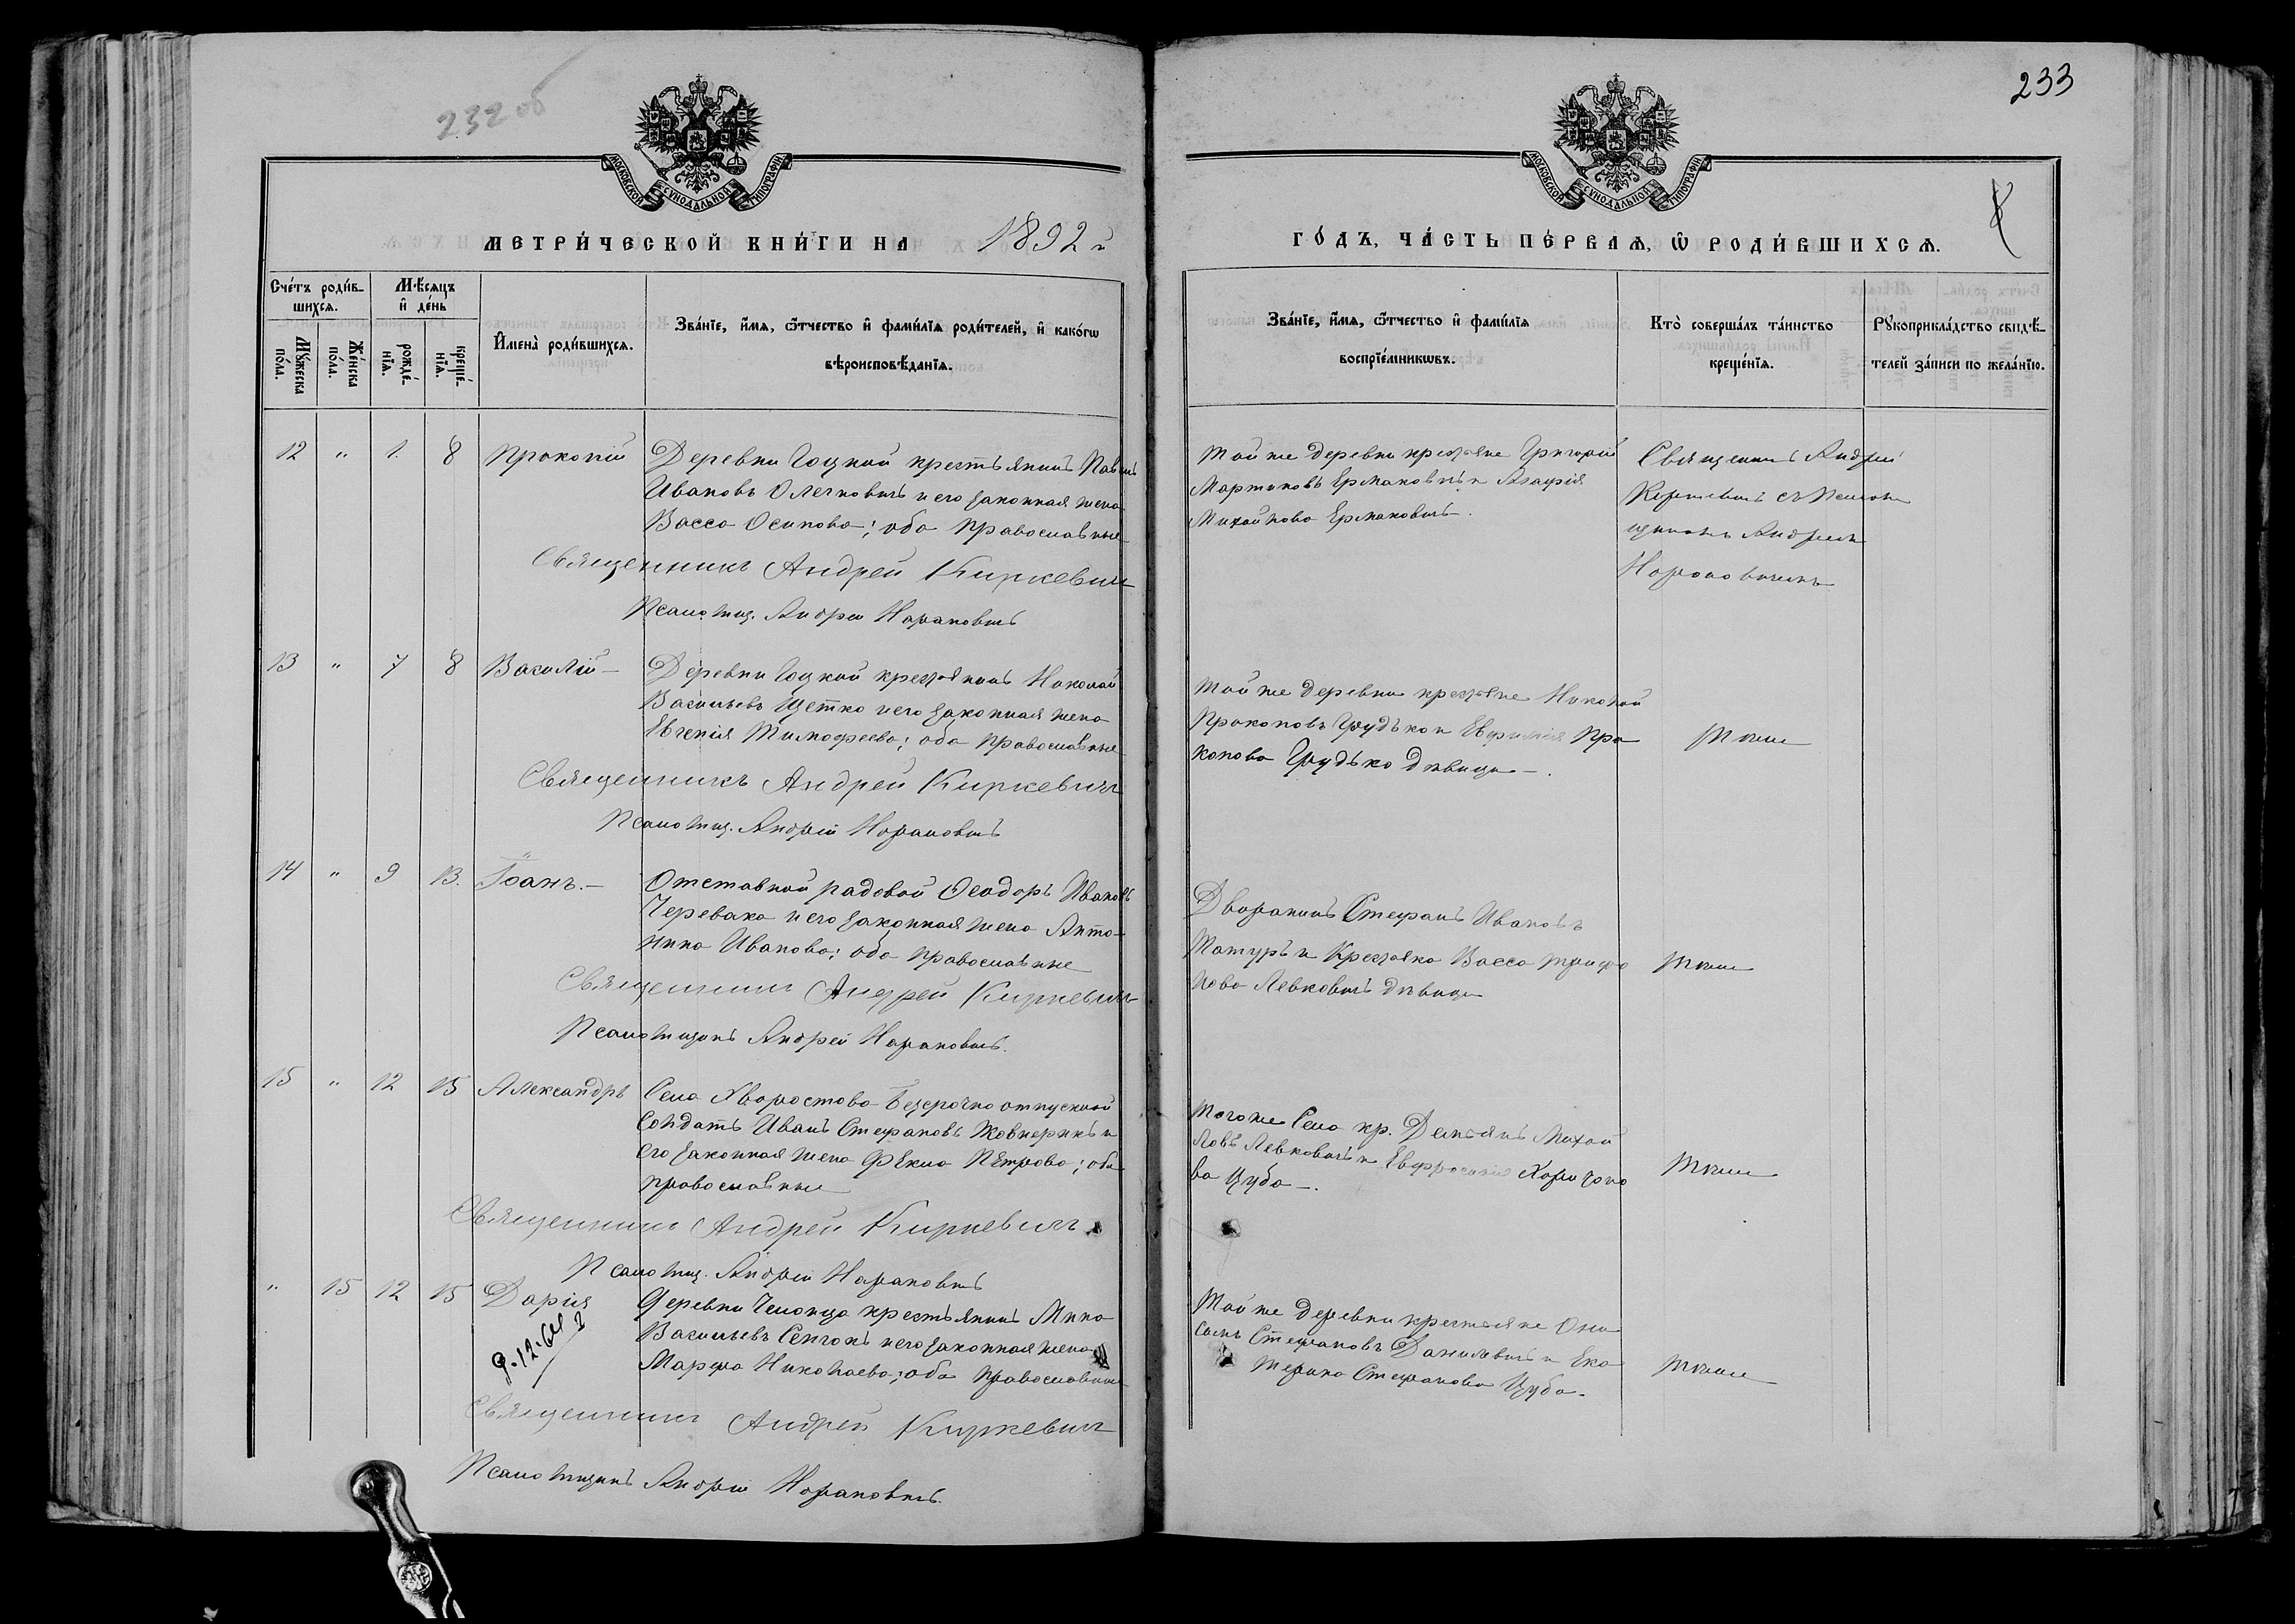 232 об
МОСКОВСКОЙ СѴНОДАЛЬНОЙ ТИПОГРАФІИ
МЕТРИ́ЧЕСКОЙ КНИ́ГИ НА 1892 й
Сче́тъ роди́в-
шихсѧ.
Мѣ́сѧцъ
и҆ де́нь
Мꙋ́жеска
по́ла.
Же́нска
по́ла.
рожде́-
нїѧ.
креще́-
нїѧ.
И҆мена̀ роди́вшихсѧ.
Зва́нїе, и҆́мѧ, ѻ҆́тчество и҆ фами́лїѧ роди́телей, и҆ како́гѡ
вѣроисповѣ́данїѧ.
12 " 1. 8 Прокопій Деревни Гоцкой крестьянинъ Павелъ
Ивановъ Олегновичъ и его законная жена
Васса Осипова; оба православные
Священникъ Андрей Киркевичъ
Псаломщ. Андрей Нарановичъ
13 " 7 8 Василій — Деревни Гоцкой крестьянинъ Николай
Васильевъ Щетко и его законная жена
Евгенія Тимофеева; оба православные
Священникъ Андрей Киркевичъ
Псаломщ. Андрей Нарановичъ
14 " 9 13. Іоанъ. — Отставной рядовой Ѳеодоръ Ивановъ
Черевако и его законная жена Анто-
нина Иванова; оба православные
Священникъ Андрей Киркевичъ
Псаломщикъ Андрей Нарановичъ.
15 " 12 15 Александръ Села Хворостова Безсрочно отпускной
Солдатъ Иванъ Стефановъ Жовнерикъ и
его законная жена Ѳекла Петрова; оба
православные
Священникъ Андрей Киркевичъ
Псаломщ. Андрей Нарановичъ
" 15 12 15 Дарія Деревни Челонца крестьянинъ Мина
Васильевъ Сенчокъ и его законная жена
9.12.64
Марфа Николаева; оба православные
Священникъ Андрей Киркевичъ
Псаломщикъ Андрей Нарановичъ.
233
МОСКОВСКОЙ СѴНОДАЛЬНОЙ ТИПОГРАФІИ
ГО́ДЪ, ЧА́СТЬ ПЕ́РВАѦ, Ѡ҆ РОДИ́ВШИХСѦ.
Зва́нїе, и҆́мѧ, ѻ҆́тчество и҆ фами́лїѧ
воспрїе́мникѡвъ.
Кто̀ соверша́лъ та́инство
креще́нїѧ.
Рꙋкоприкла́дство свидѣ́-
телей за́писи по жела́нїю.
Той же деревни крестьяне Григорій
Мартиновъ Ермаковичъ и Агафія
Михайлова Ермаковичъ.
Священникъ Андрей
Киркевичъ съ Псалом
щикомъ Андреемъ
Нарановичемъ
Той же деревни крестьяне Николай
Прокоповъ Грудько и Евфимія Про
копова Грудько дѣвица —.
Тѣже
Дворянинъ Стефанъ Ивановъ
Татуръ и Крестьянка Васса Трифо
нова Левковичъ дѣвица
Тѣже
Тогоже Села кр. Демьянъ Михай
ловъ Левковичъ и Евфросинія Харитоно
ва Цуба —.
Тѣже
Той же деревни крестьяне Они
симъ Стефановъ Данилевичъ и Ека
терина Стефанова Цуба.
Тѣже